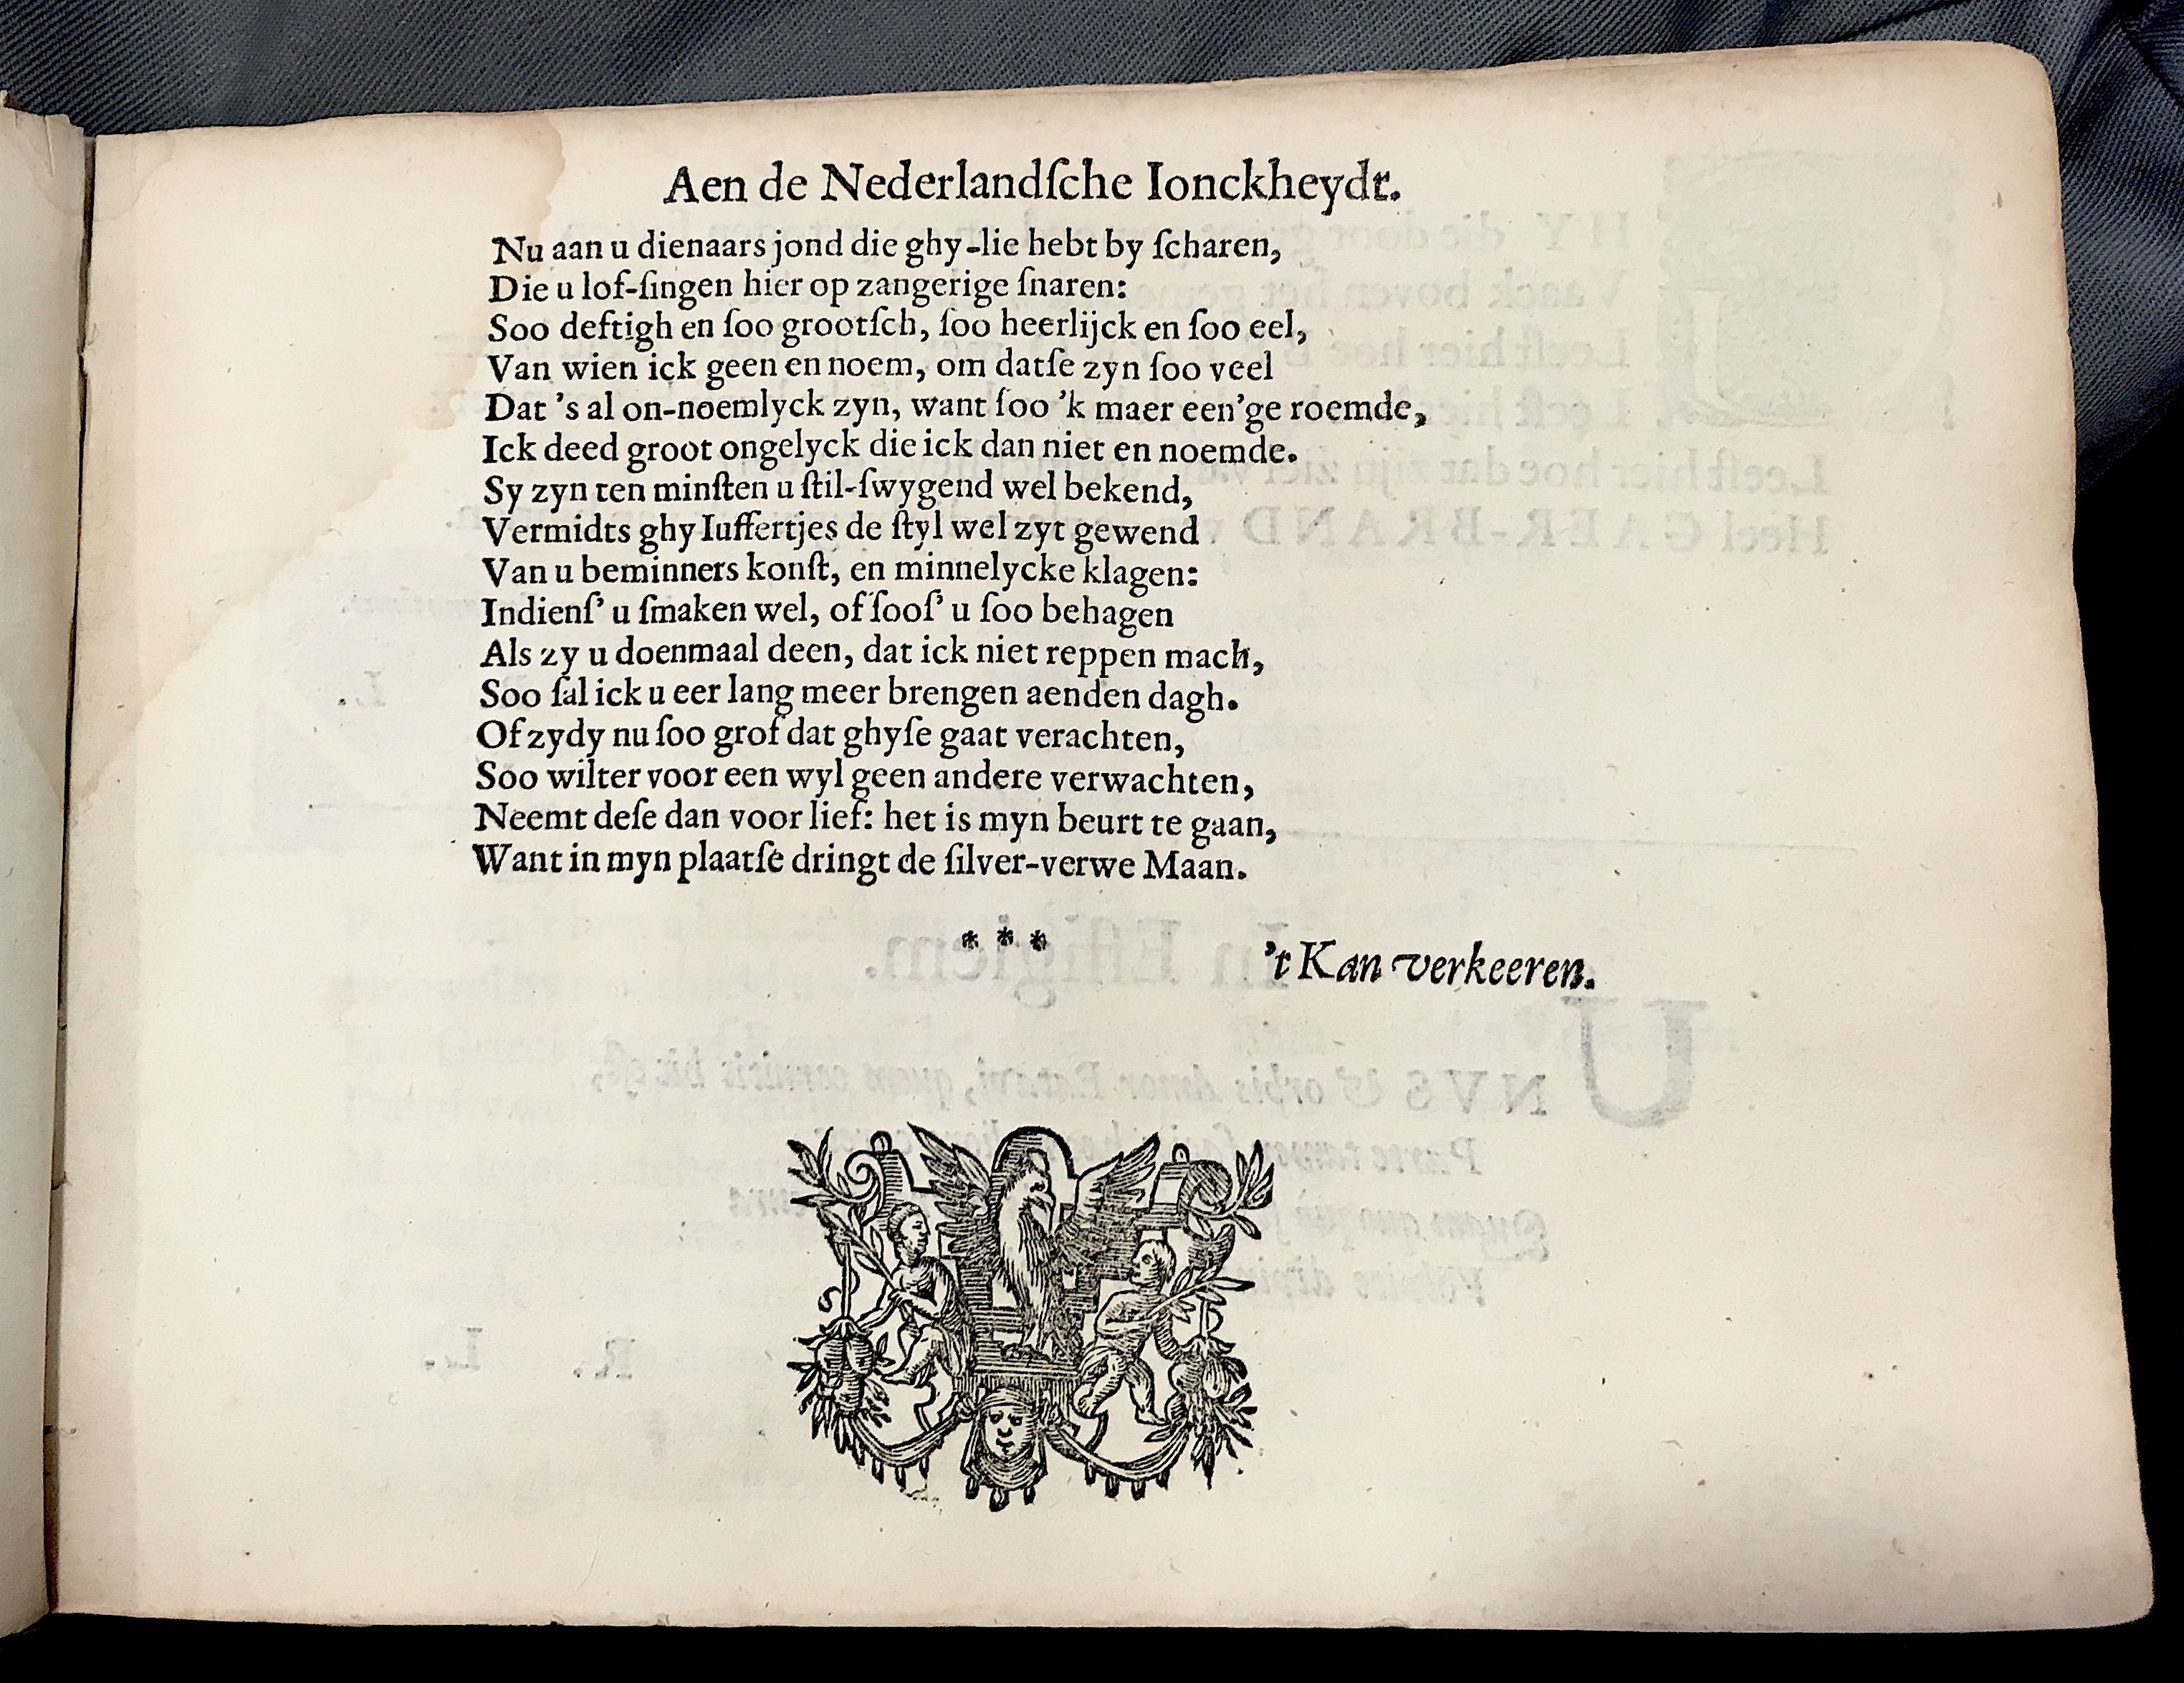 Aen de Nederlandſche Ionckheydt.
Nu aan u dienaars jond die ghy-lie hebt by ſcharen,
Die u lof-ſingen hier op zangerige ſnaren:
Soo deftigh en ſoo grootſch, ſoo heerlijck en ſoo eel,
Van wien ick geen en noem, om datſe zyn ſoo veel
Dat 's al on-noemlyck zyn, want ſoo 'k maer een'ge roemde,
Ick deed groot ongelyck die ick dan niet en noemde.
Sy zyn ten minſten u ſtil-ſwygend wel bekend,
Vermidts ghy Iuffertjes de ſtyl wel zyt gewend
Van u beminners konſt, en minnelycke klagen:
Indienſ' u ſmaken wel, of ſooſ' u ſoo behagen
Als zy u doenmaal deen, dat ick niet reppen mach,
Soo ſal ick u eer lang meer brengen aenden dagh.
Of zydy nu ſoo grof dat ghyſe gaat verachten,
Soo wilter voor een wyl geen andere verwachten,
Neemt deſe dan voor lief: het is myn beurt te gaan,
Want in myn plaatſe dringt de ſilver-verwe Maan.
* * *
't Kan verkeeren.